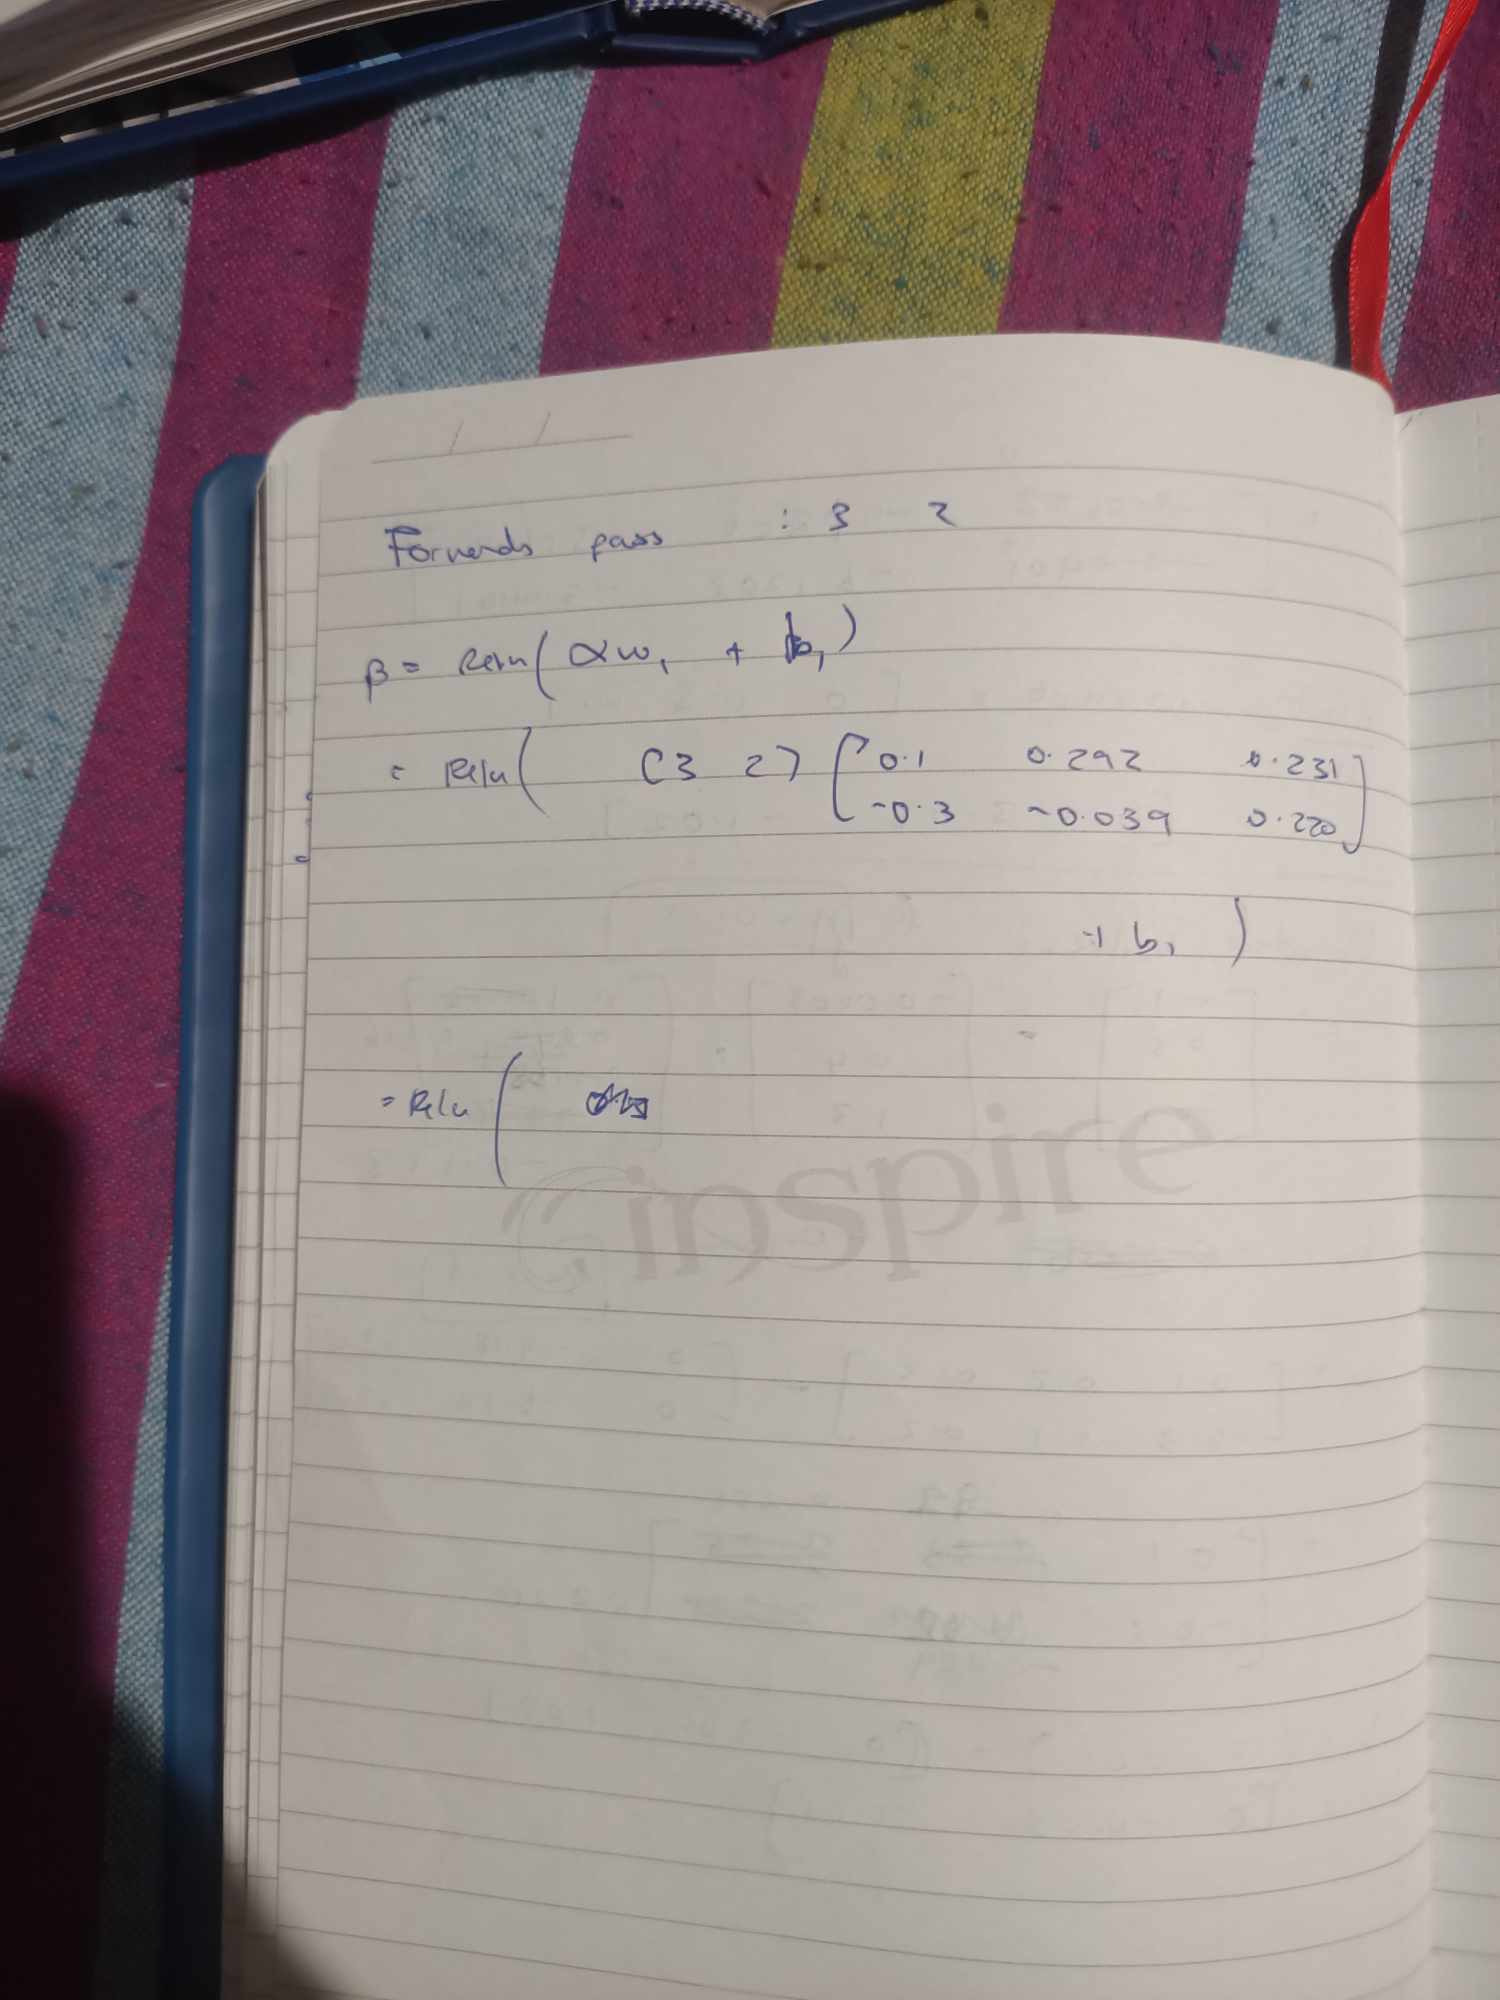 Forwards pass : 3 2
β = Relu( αw₁ + b₁)
= Relu( [3 2] [0.1 0.292 0.231
-0.3 -0.039 0.220]
+ b₁ )
= Relu (
inspire